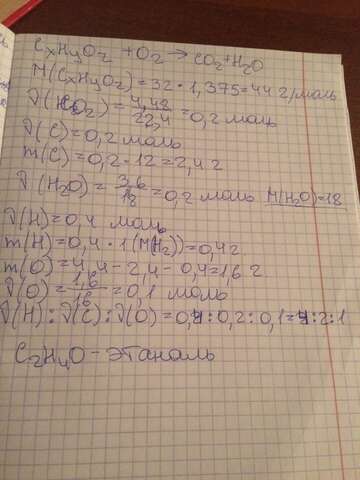 CxHyOz + O2 → CO2 + H2O
M(CxHyOz) = 32 · 1,375 = 44 г/моль
ν(CO2) = 4,48/22,4 = 0,2 моль
ν(C) = 0,2 моль
m(C) = 0,2 · 12 = 2,4 г
ν(H2O) = 3,6/18 = 0,2 моль M(H2O) = 18
ν(H) = 0,4 моль
m(H) = 0,4 · 1(M(H2)) = 0,4 г
m(O) = 4,4 – 2,4 – 0,4 = 1,6 г
ν(O) = 1,6/16 = 0,1 моль
ν(H) : ν(C) : ν(O) = 0,4 : 0,2 : 0,1 = 4 : 2 : 1
C2H4O – этаналь